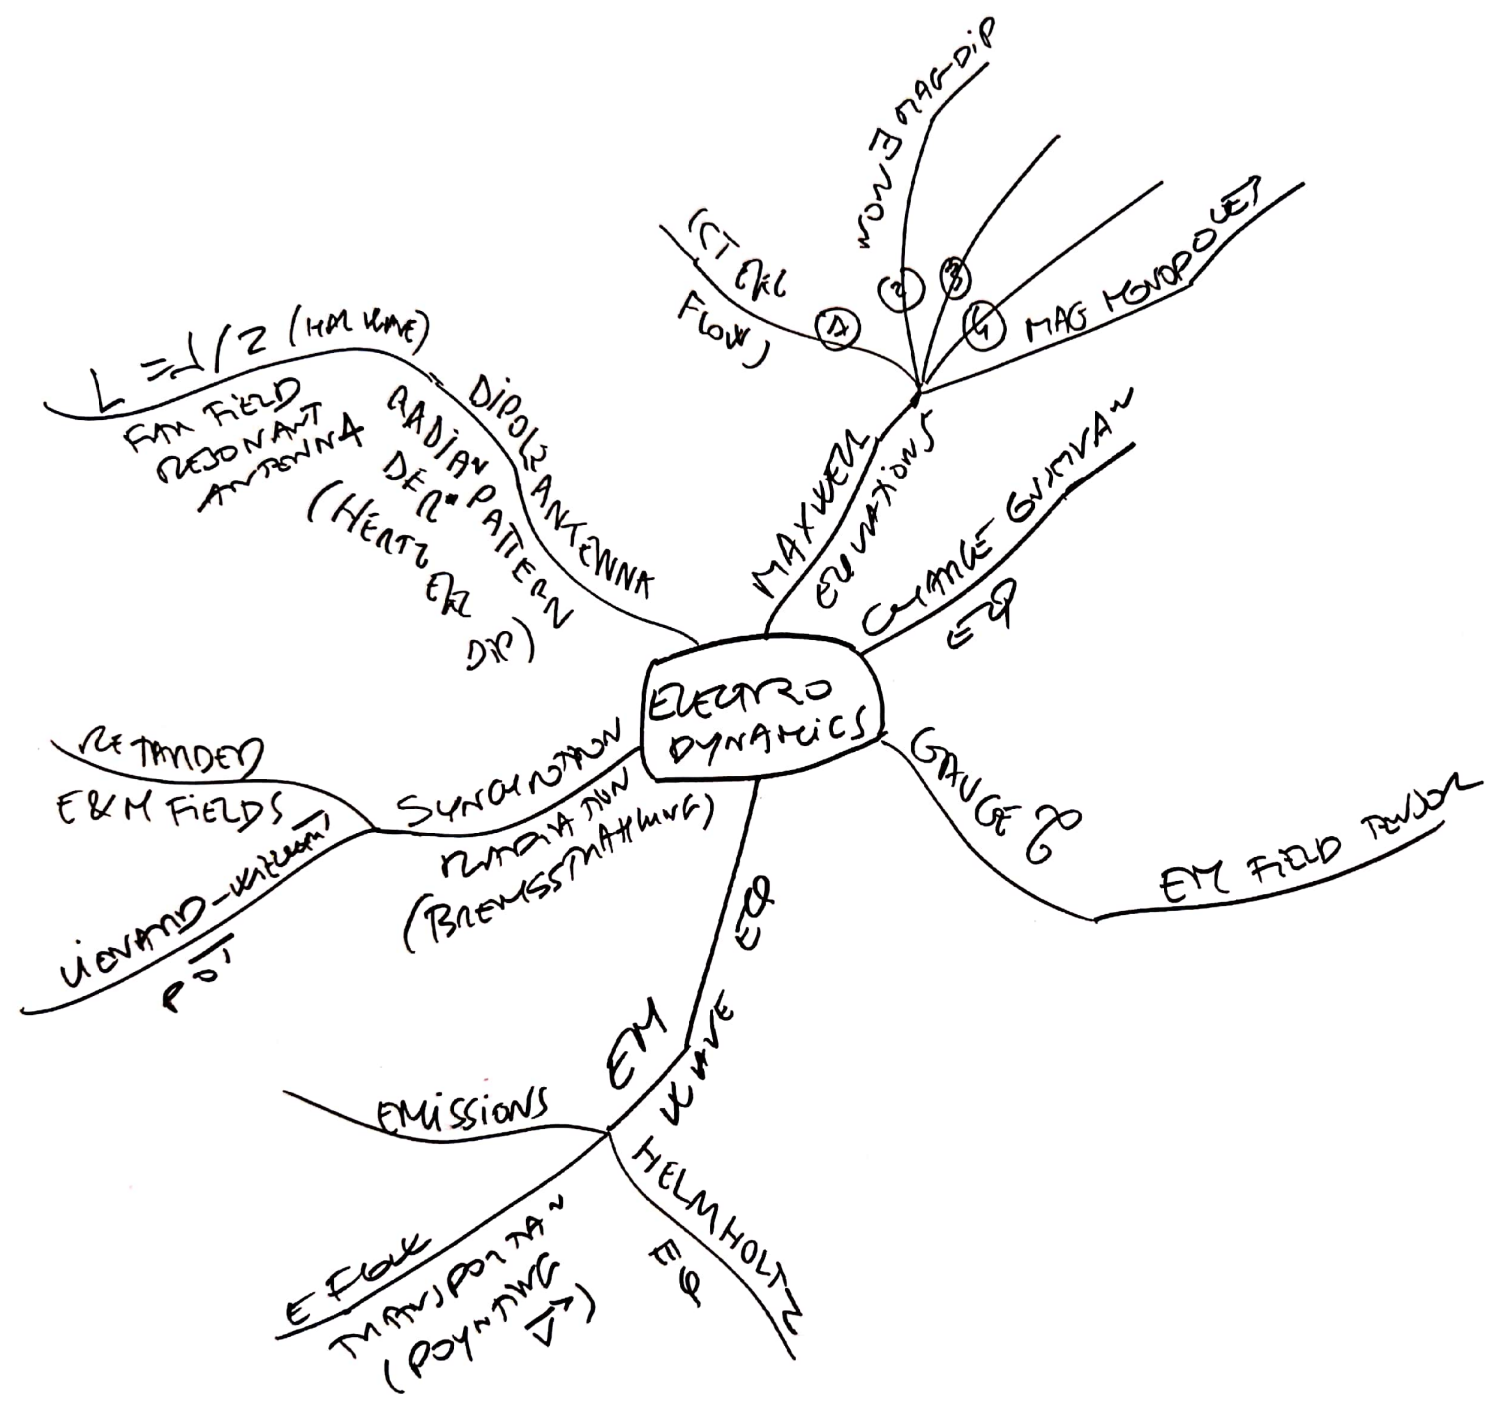 ELECTRO
DYNAMICS
MAXWELL
EQUATIONS
1
FLOW)
2
NON ∃ MAG-DIP
3
4
MAG MONOPOLES
CHARGE
EQ
GAUGE
EM FIELD TENSOR
EM
WAVE
EQ
HELMHOLTZ
EQ
E FLOW
TRANSPORTA~
(POYNTING
V)
EMISSIONS
SYNCHROTRON
RADIATION
(BREMSSTRAHLUNG)
RETARDED
E&M FIELDS
LIENARD-WIECHERT
POT
DIPOLE ANTENNA
RADIA~ PATTERN
DER.
(HERTZ
DIP)
L = λ/2 (HALF WAVE)
FAR FIELD
RESONANT
ANTENNA